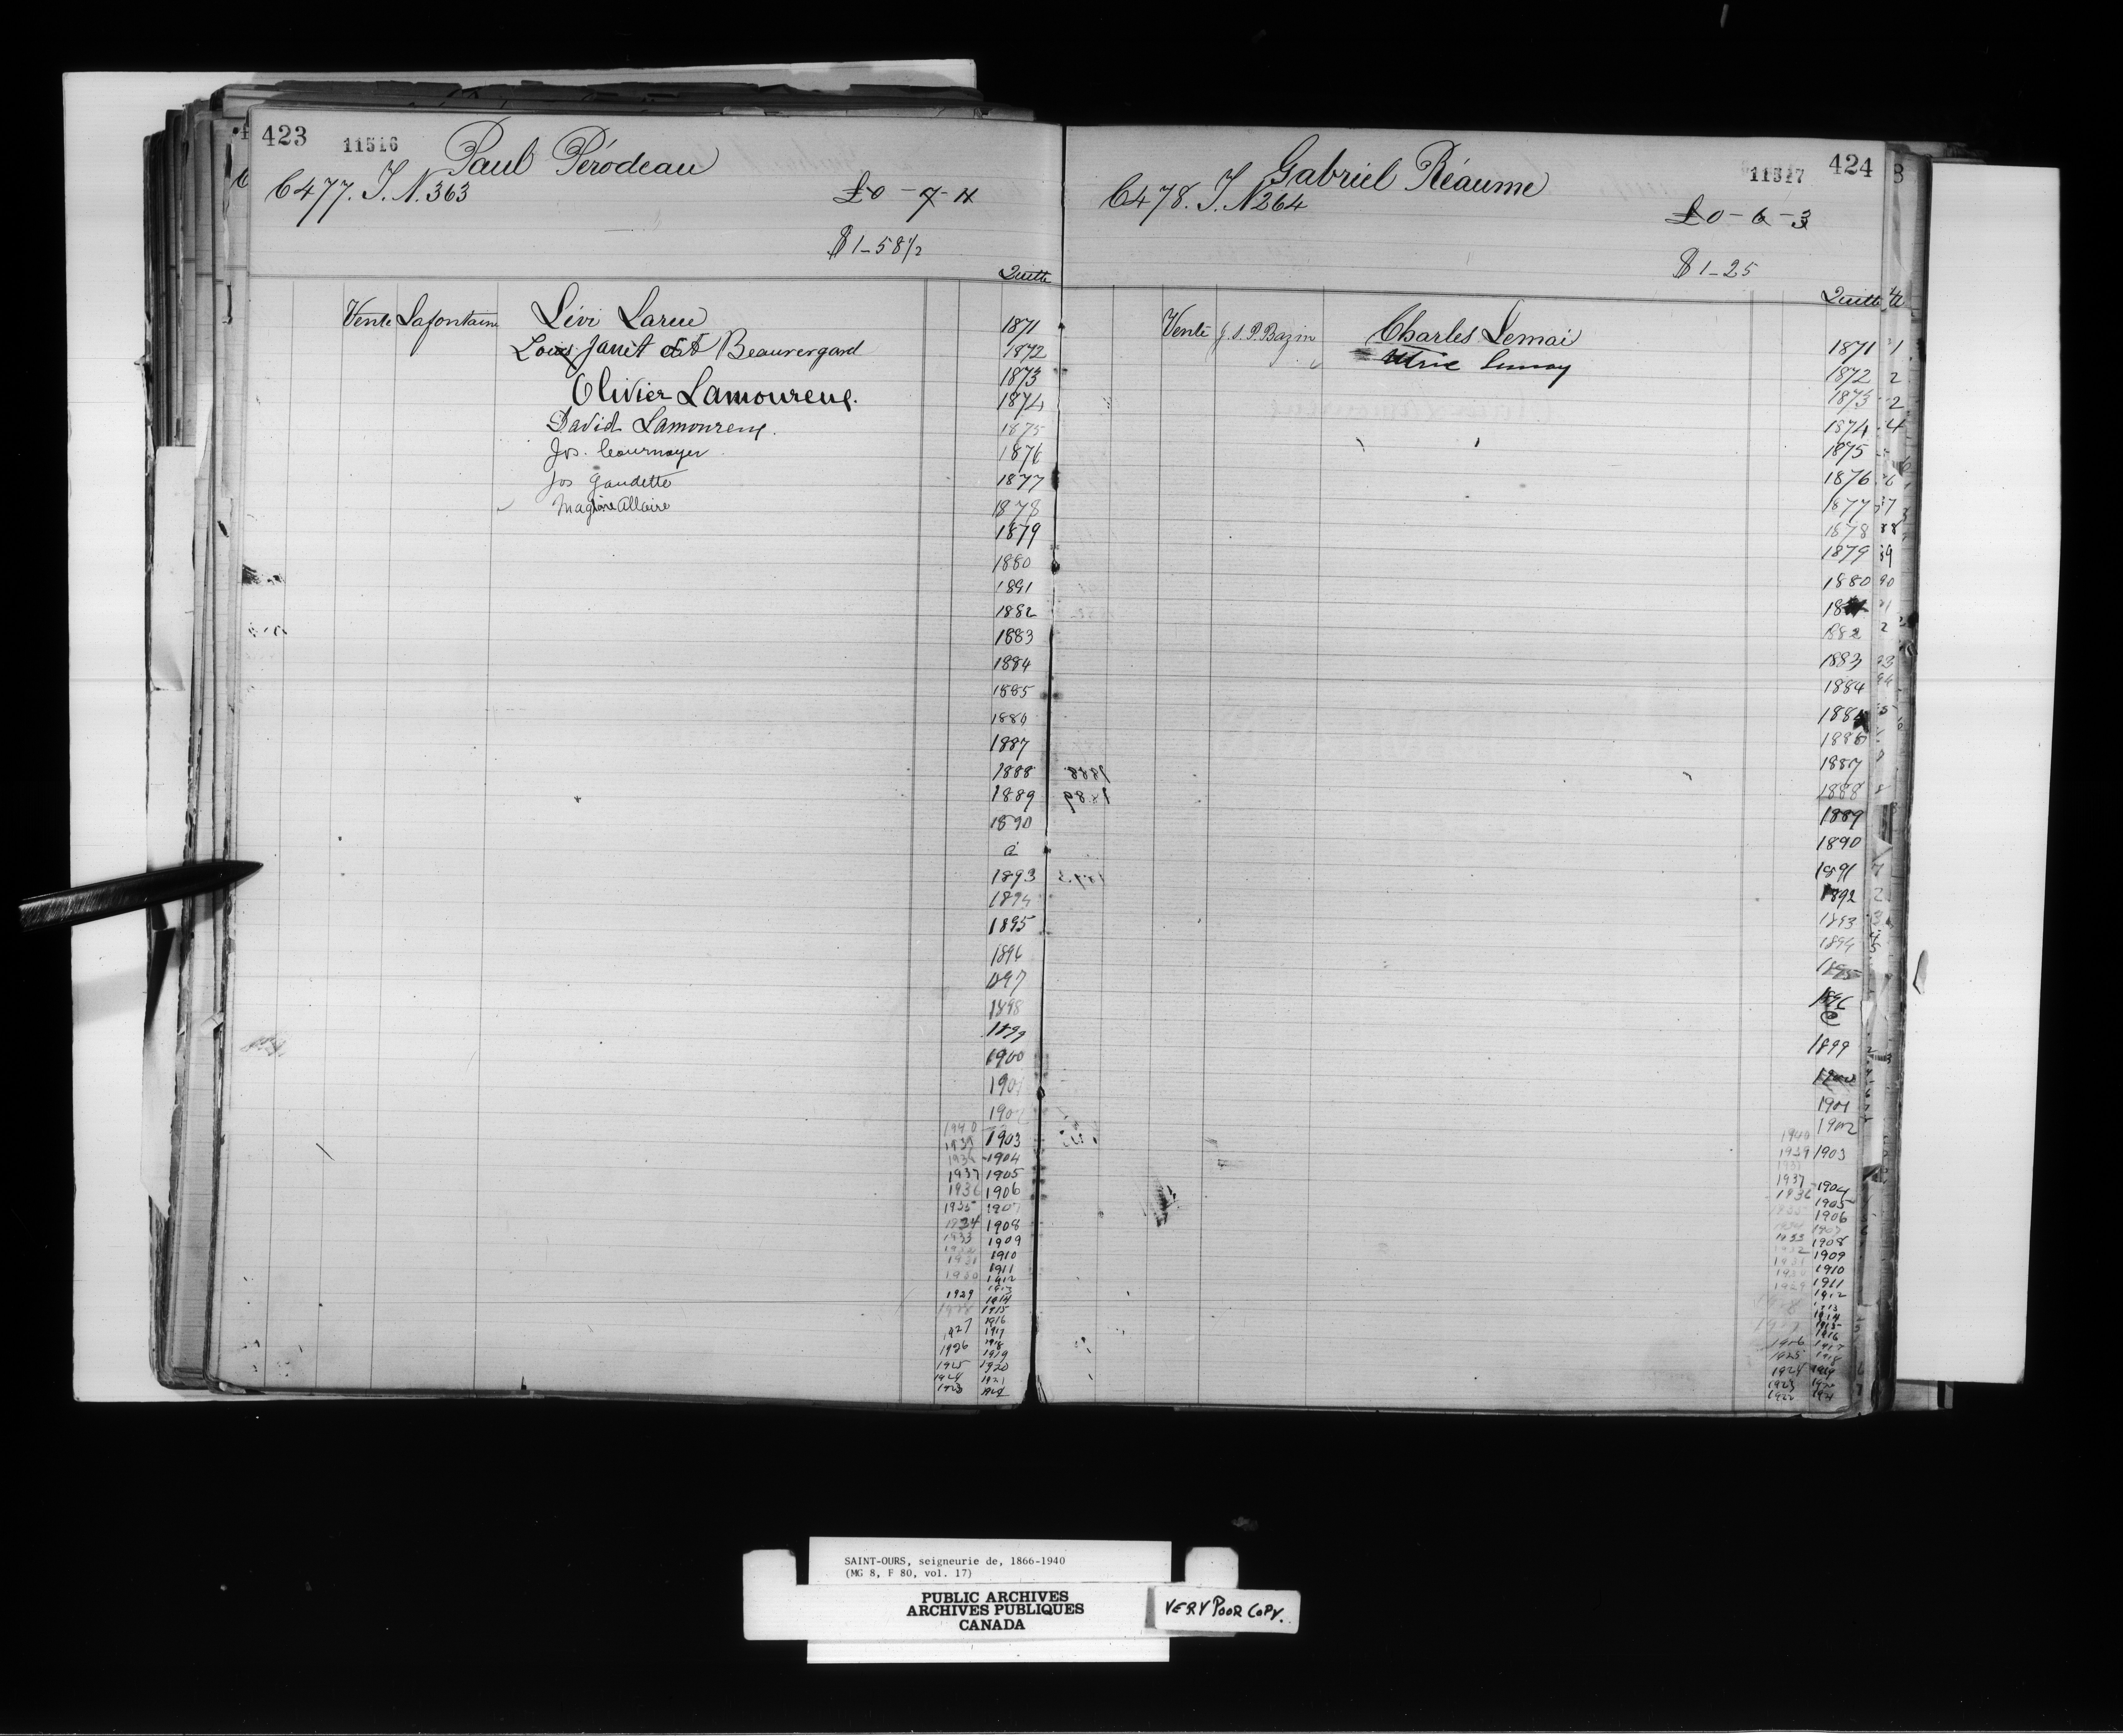 423 11516 Paul Pérodeau
C477. T. N. 363
£0-7-11
$1-58 1/2
Quitte
Vente Lafontaine Lévi Larue
Louis Janet dit Beauregard
Olivier Lamoureux.
David Lamoureux.
Jos. Cournoyer
Jos Gaudette
Magloire Allaire
1871
1872
1873
1874
1875
1876
1877
1878
1879
1880
1891
1882
1883
1884
1885
1886
1887
1888
1889
1890
à
1893
1894
1895
1896
1897
1898
1899
1900
1901
1902
1940
1939 1903
1938 1904
1937 1905
1936 1906
1935 1907
1934 1908
1933 1909
1932 1910
1931 1911
1930 1912
1913
1929 1914
1928 1915
1916
1927 1917
1918
1926 1919
1925 1920
1924 1921
1923
424 11517 Gabriel Réaume
C478. T. N 264
£0-6-3
$1-25
Quitte
Vente J. S. P. Bazin Charles Lemai
Ulric Lemay
1871
1872
1873
1874
1875
1876
1877
1878
1879
1880
1882
1883
1884
1886
1887
1888
1889
1890
1891
1892
1893
1894
1895
1896
@
1899
1900
1901
1902
1940
1939 1903
1937 1904
1936 1905
1935 1906
1934 1907
1933 1908
1932 1909
1931 1910
1930 1911
1929 1912
1913
1914
1915
1926 1916
1917
1925 1918
1924 1919
1923 1920
1922 1921
SAINT-OURS, seigneurie de, 1866-1940
(MG 8, F 80, vol. 17)
PUBLIC ARCHIVES
ARCHIVES PUBLIQUES
CANADA
VERY POOR COPY.